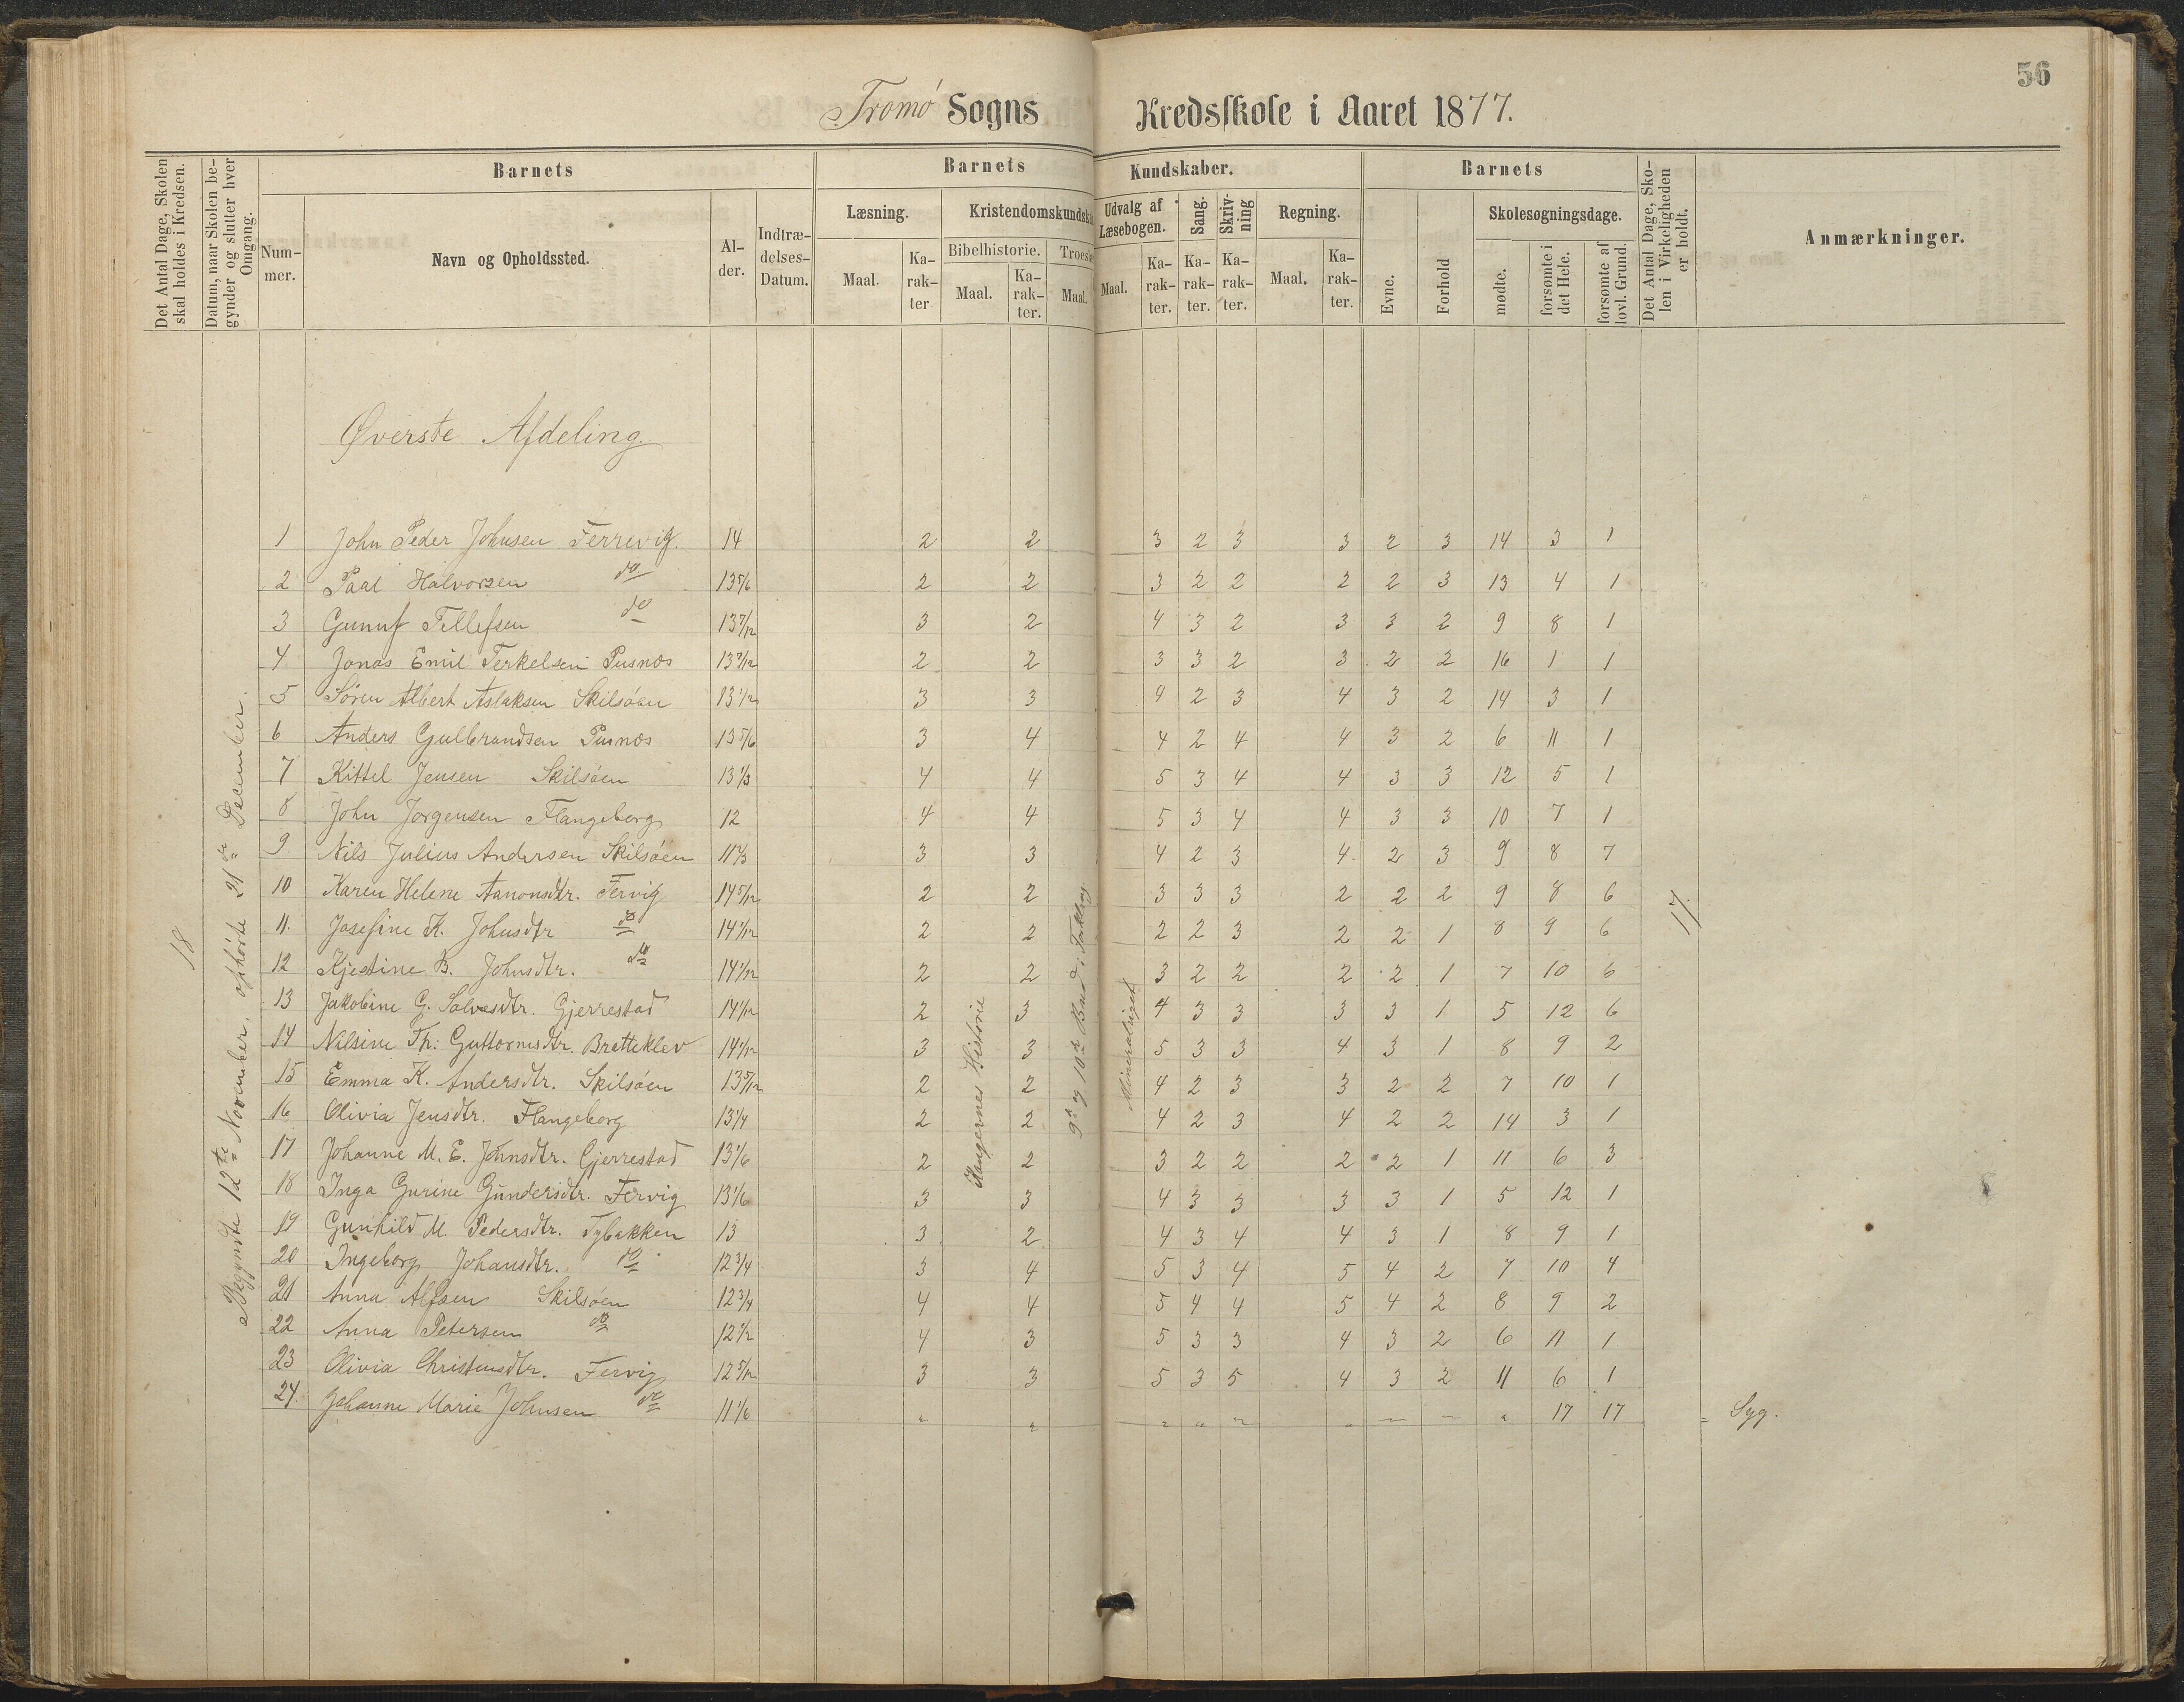 56
Tromö Sogns Kredsskole i Aaret 1877.
Det Antal Dage, Skolen skal holdes i Kredsen.
Datum, naar Skolen begynder og slutter hver Omgang.
Barnets
Barnets Kundskaber.
Barnets
Det Antal Dage, Skolen i Virkeligheden er holdt.
Anmærkninger.
Nummer.
Navn og Opholdssted.
Alder.
Indtrædelses-Datum.
Læsning.
Kristendomskundska
Udvalg af Læsebogen.
Sang.
Skrivning
Regning.
Evne.
Forhold
Skolesøgningsdage.
Maal. Karakter
Bibelhistorie. Maal. Karakter.
Troesl Maal.
Maal. Karakter. Karakter. Karakter. Maal. Karakter.
mødte. forsømte i det Hele. forsømte af lovl. Grund.
Øverste Afdeling
18
Begyndte 12te November, ophørte 21de December.
Kongernes Historie
9de og 10de Bud i Forklaring
Mineralriget
17.
1 John Peder Johnsen Ferrevig. 14 2 2 3 2 3 3 2 3 14 3 1
2 Paal Halvorsen do 13 5/6 2 2 3 2 2 2 2 3 13 4 1
3 Gunuf Tellefsen do 13 7/12 3 2 4 3 2 3 3 2 9 8 1
4 Jonas Emil Terkelsen Pusnes 13 7/12 2 2 3 3 2 3 2 2 16 1 1
5 Søren Albert Aslaksen Skilsøen 13 1/2 3 3 4 2 3 4 3 2 14 3 1
6 Anders Gulbrandsen Pusnes 13 5/6 3 4 4 2 4 4 3 2 6 11 1
7 Kittel Jensen Skilsøen 13 1/3 4 4 5 3 4 4 3 3 12 5 1
8 John Jørgensen Flangeborg 12 4 4 5 3 4 4 3 3 10 7 1
9 Nils Julius Andersen Skilsøen 11 2/3 3 3 4 2 3 4 2 3 9 8 7
10 Karen Helene Aanonsdtr. Fervig 14 5/12 2 2 3 3 3 2 2 2 9 8 6
11. Josefine K. Johnsdtr do 14 1/12 2 2 2 2 3 2 2 1 8 9 6
12 Kjestine B. Johnsdtr. do 14 1/12 2 2 3 2 2 2 2 1 7 10 6
13 Jakobine G. Salvesdtr. Gjerrestad 14 1/12 2 3 4 3 3 3 3 1 5 12 6
14 Nilsine Th: Guttormsdtr. Bratteklev 14 1/12 3 3 5 3 3 4 3 1 8 9 2
15 Emma K. Andersdtr. Skilsøen 13 5/12 2 2 4 2 3 3 2 2 7 10 1
16 Olivia Jensdtr. Flangeborg 13 1/4 2 2 4 2 3 4 2 2 14 3 1
17 Johanne M. E. Johnsdtr. Gjerrestad 13 1/6 2 2 3 2 2 2 2 1 11 6 3
18 Inga Gurine Gundersdtr. Fervig 13 1/6 3 3 4 3 3 3 3 1 5 12 1
19 Gunhild M. Pedersdtr. Tybakken 13 3 2 4 3 4 4 3 1 8 9 1
20 Ingeborg Johansdtr. do 12 3/4 3 4 5 3 4 5 4 2 7 10 4
21 Anna Alfsen Skilsøen 12 3/4 4 4 5 4 4 5 4 2 8 9 2
22 Anna Petersen do 12 1/2 4 3 5 3 3 4 3 2 6 11 1
23 Olivia Christensdtr. Fervig 12 5/12 3 3 5 3 5 4 3 2 11 6 1
24. Johanne Marie Johnsen do 11 1/6 " " " " " " " " " 17 17 " Syg.